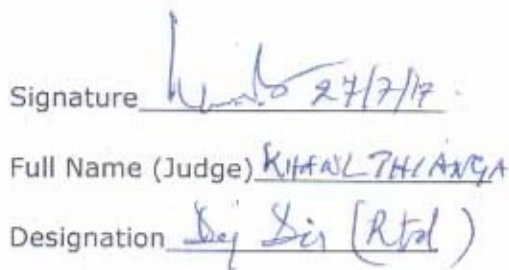 Signature 27/7/17.
Full Name (Judge) KHAWLTHIANGA
Designation Dej Dir (Rtd)